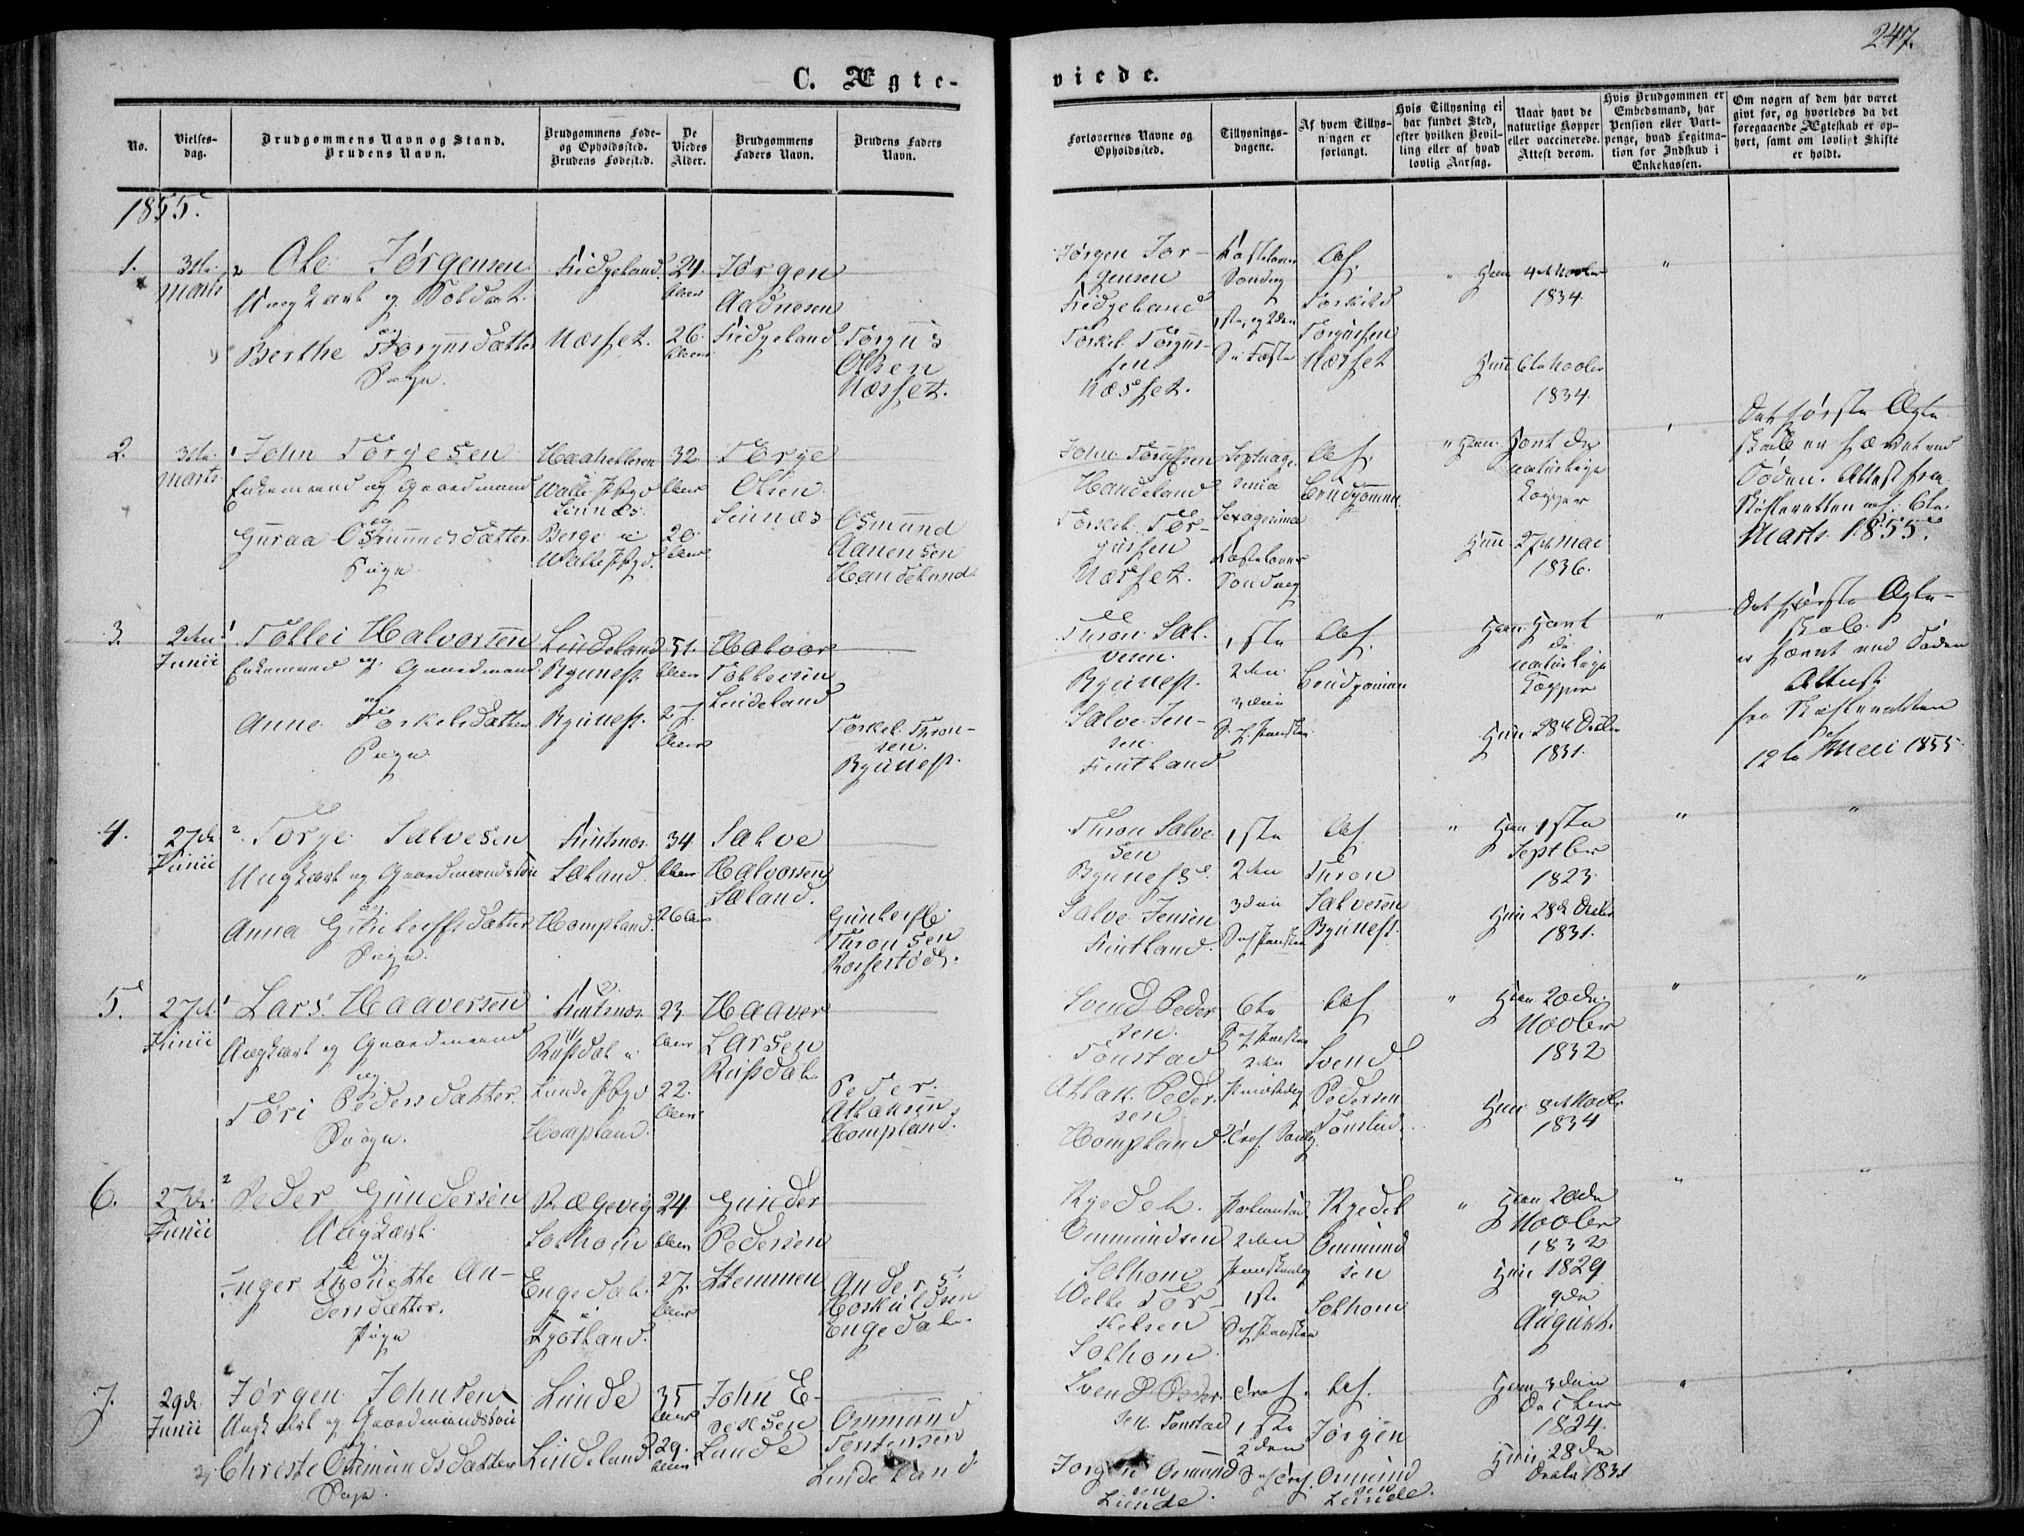 247.
C. Ægte-
viede.
No.
Vielses-
dag.
Brudgommens Navn og Stand.
Brudens Navn.
Brudgommens Føde-
og Opholdssted.
Brudens Fødested.
De
Viedes
Alder.
Brudgommens
Faders Navn.
Brudens Faders
Navn.
Forlovernes Navne og
Opholdssted.
Tillysnings-
dagene.
Af hvem Tillys-
ningen er
forlangt.
Hvis Tillysning ei
har fundet Sted,
efter hvilken Bevil-
ling eller af hvad
lovlig Aarsag.
Naar havt de
naturlige Kopper
eller vaccinerede.
Attest derom.
Hvis Brudgommen er
Embedsmand, har
Pension eller Vart-
penge, hvad Legitima-
tion for Indskud i
Enkekassen.
Om nogen af dem har været
givt før, og hvorledes da det
foregaaende Ægteskab er op-
hørt, samt om lovligt Skifte
er holdt.
1855.
1.
3die
Marts
Ole Jørgensen
Ungkarl og Soldat.
og
Berthe Torgusdatter
Pige.
Fidgeland
Næsset.
24.
Aar
26.
Aar
Jørgen
Aadnesen
Fidgeland
Torgus
Olsen
Næsset.
Jørgen Jør-
gensen
Fidgeland
Torkel Torgus-
sen
Næsset.
Fastelavns
Søndag
1ste og 2den
S. i Faste
Af
Torkild
Torgussen
Næsset
Ham 4de Novbr
1834.
Hun 6te Novbr
1834.
2
3die
Marts
John Torgesen
Enkemand og Gaardmand
og
Guraa Osmundsdatter
Pige.
Haahelleren
Valle Pgd
Sinnæs.
Berge i
Valle Pgd.
32
Aar
20
Aar
Torge
Olsen
Sinnæs
Osmund
Aanensen
Haudeland
John
Haudeland
Torkel Tor-
gussen
Næsset.
Septuage-
sima
Sexagesima
Fastelavns
Søndag
Af
Brudgommen
Ham havt de
naturlige
Kopper
Hun 27de Mai
1836.
Det første Ægte
skab er hævet ved
Døden. Attest fra
Skifteretten af 6te
Marts 1855.
3.
2den
Junii
Tollei Halvorsen
Enkemand og Gaardmand
og
Anne Torkelsdatter
Pige
Lindeland
Bjunes.
Bjunes.
51.
Aar
27.
Aar
Halvor
Tolleisen
Lindeland
Torkel Thron-
sen.
Bjunes.
Thron Sal-
vesen.
Bjunes.
Salve Jen-
sen.
Fintland
1ste
2den
3die
S. f. Paaske
Af
Brudgommen
Ham havt
de
naturlige
Kopper
Hun 28de Decbr
1831.
Det første Ægte-
skab
er hævet ved Døden
Attest
fra Skifteretten
af
12te Mai 1855.
4.
27de
Junii
Torge Salvesen
Ungkarl og Gaardmandssøn
og
Anna Gunleifsdatter
Pige.
Fintnæs
Sæland.
Hompland.
34
Aar
26 Aar
Salve
Halvorsen
Sæland.
Gunleif
Thronsen
Thron Salve-
sen
Bjunes.
Salve Jensen
Fintland.
1ste
2den
3die
S. ef. Paaske
Af
Thron
Salvesen
Bjunes.
Ham 1ste
Septbr
1823.
Hun 28de Decbr
1831.
5.
27de
Junii
Lars Haaversen
Ungkarl og Gaardmand
og
Tøri Pedersdatter
Pige.
Fintnæs
Rusdal i
Lunde Pgd
Hompland.
23
Aar
22.
Aar
Haaver
Larsen
Rusdal
Peder
Atlaksen
Hompland.
Svend Peder-
sen.
Tonstad
Atlak Peder-
sen
Hompland.
6te
S. ef. Paaske
2den
Pintsedag
Tref. Søndag.
Af
Svend
Pedersen
Tonstad.
Ham 20de
Novbr
1832
Hun 8de Novbr
1834
6.
27de
Junii
Peder Gundersen
Ungkarl
og
Inger Thonette An-
dersdatter.
Pige
Rægevig
Solhom
Engedal
i
Fjotland.
24.
Aar
27.
Aar
Gunder
Pedersen
Stemmen
Anders
Hoskuldsen
Engedal.
Kjedel
Ommundsen
Solhom
Tor-
kelsen
Solhom.
2den
1ste
S. ef. Paaske
Kjedel
Ommund
sen
Solhom
Ham 20de
Novbr
1832
Hun 1829
9de
August.
7.
29de
Junii
Jørgen Johnsen
Ungkarl og Gaardmandssøn
og
Christe Ommundsdatter
Pige.
Lunde
Lindeland
35
Aar
29.
Aar
John E-
Lunde
Ommund
Torstensen
Lindeland
Svend Peder-
sen. Tonstad
Jørgen Ommund
sen
Lunde.
Tref.
1ste
2den
S. ef. Tref.
Af.
Jørgen
Ommund
sen
Lunde.
Ham 3die
Decbr
1824.
Hun 28de
Decbr 1831